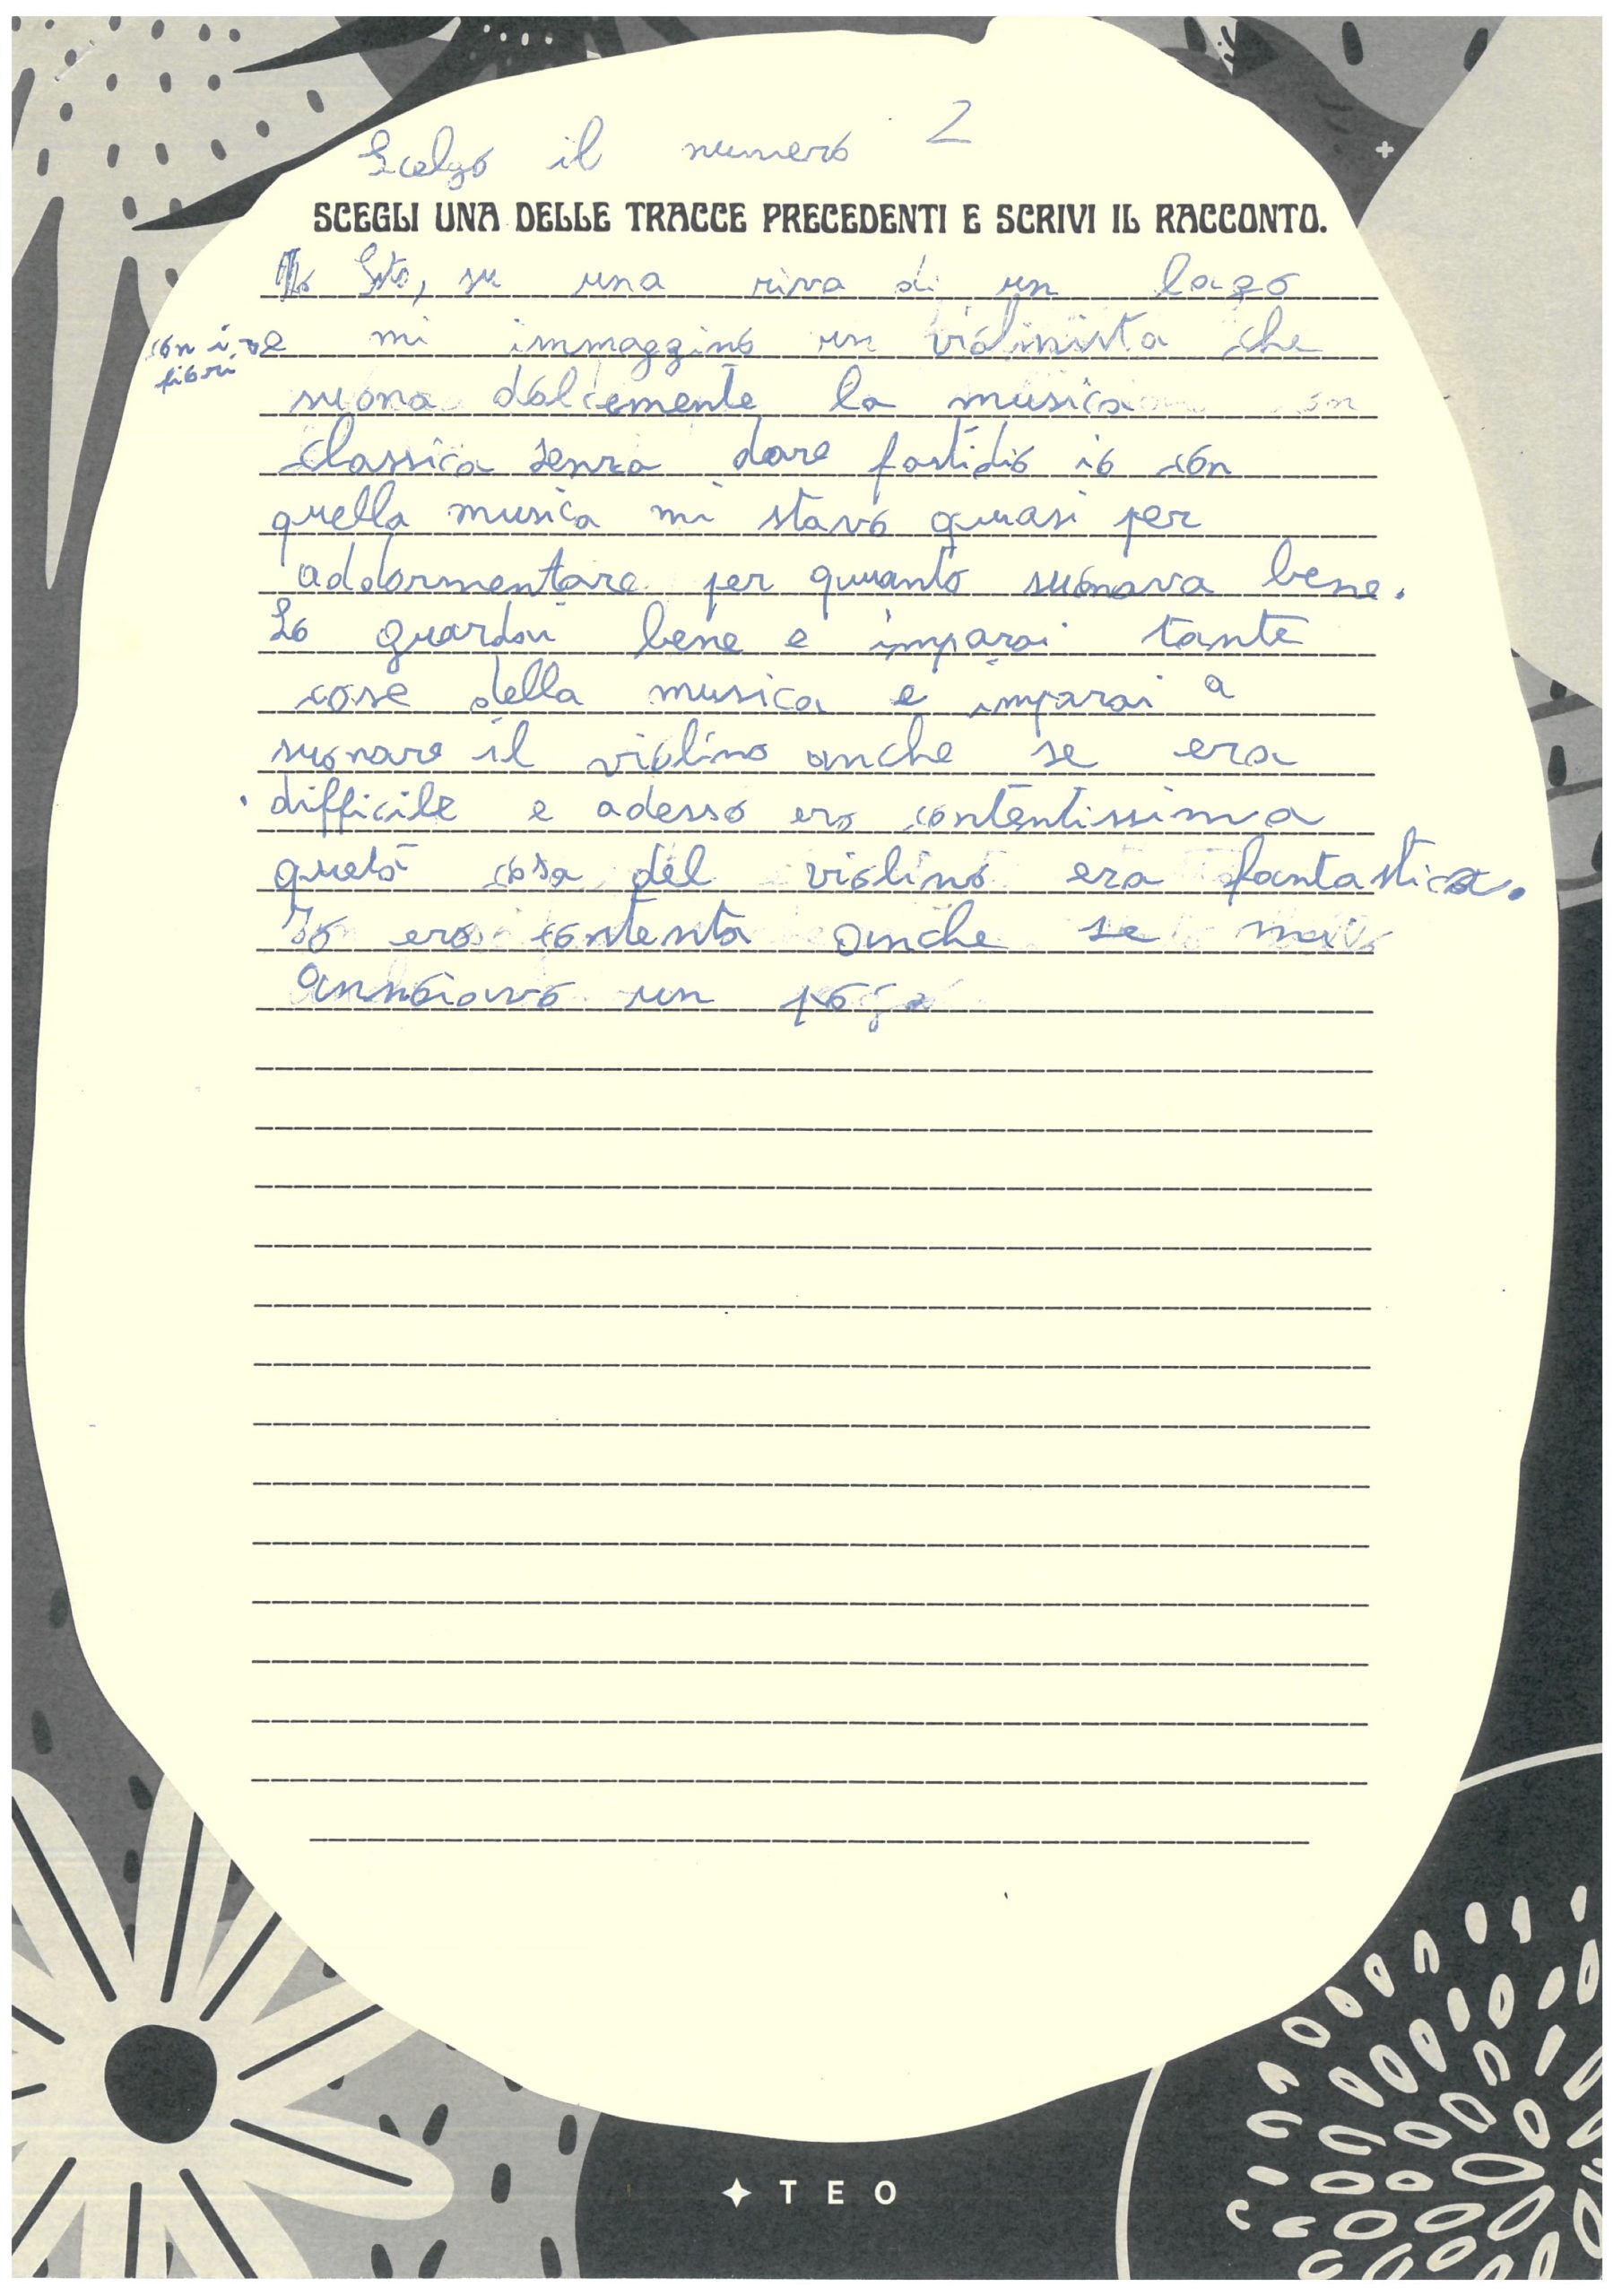 Scelgo il numero 2
SCEGLI UNA DELLE TRACCE PRECEDENTI E SCRIVI IL RACCONTO.
Sto, su una riva di un lago
con i
fiori
e mi immaggino un violinista che
suona dolcemente la musica
classica senza dare fastidio io con
quella musica mi stavo quasi per
addormentare per quanto suonava bene.
Lo guardai bene e imparai tante
cose della musica e imparai a
suonare il violino anche se era
difficile e adesso ero contentissima
questa cosa del violino era fantastica.
Io ero contenta anche se
annoiavo un
TEO